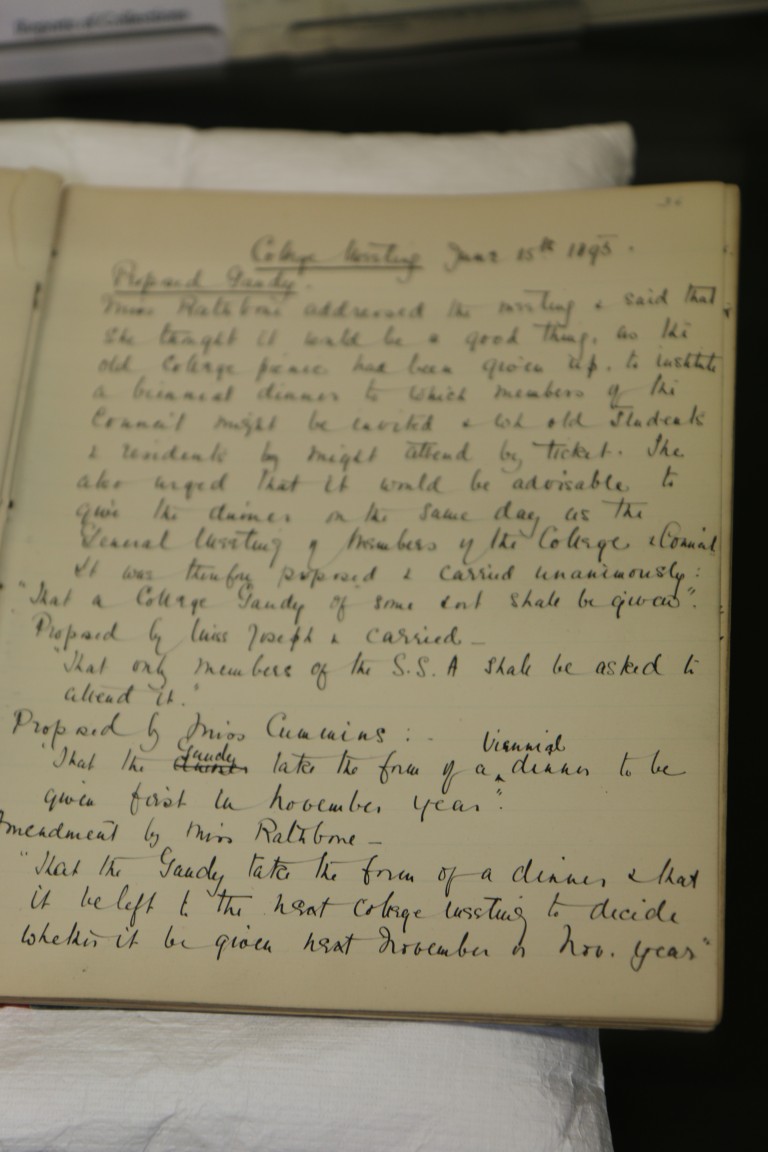 Reports & Collections
36
College Meeting June 15th 1895.
Proposed Gaudy.
Miss Rathbone addressed the meeting & said that
she thought it would be a good thing, as the
old College picnic had been given up, to institute
a biennial dinner to which members of the
Council might be invited & wh old Students
& residents by might attend by ticket. She
also urged that it would be advisable to
give the dinner on the same day as the
General Meeting of Members of the College & Council
It was therefore proposed & carried unanimously:
"That a College Gaudy of some sort shall be given".
Proposed by Miss Joseph & carried –
"That only members of the S.S.A shall be asked to
attend it."
Proposed by Miss Cummins : -
"That the dinner Gaudy take the form of a biennial dinner to be
given first in November year".
Amendment by Miss Rathbone –
"That the Gaudy take the form of a dinner & that
it be left to the next college meeting to decide
whether it be given next November or Nov. year"